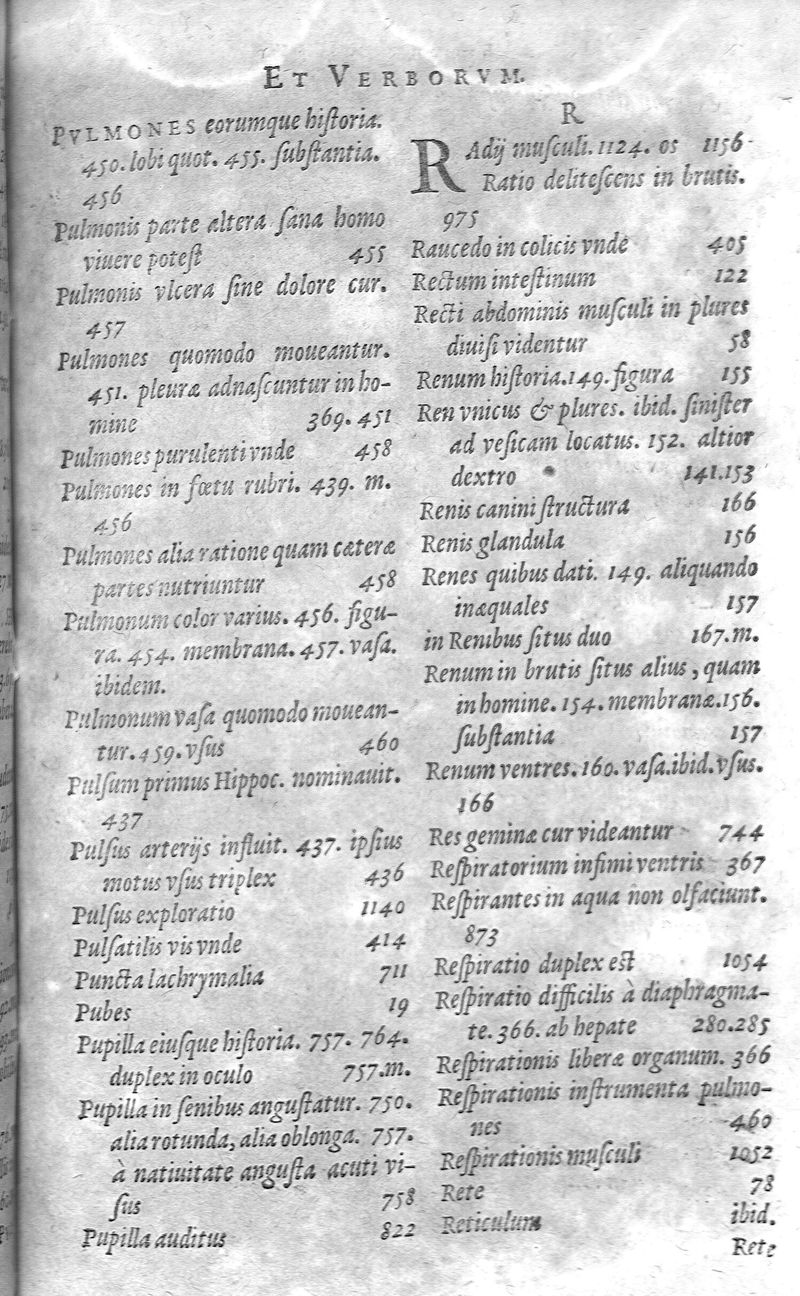 ET VERBORVM.
PVLMONES eorumque hiſtoria.
450. lobi quot. 455. ſubſtantia.
456
Pulmonis parte altera ſana homo
viuere poteſt 455
Pulmonis vlcera ſine dolore cur.
457
Pulmones quomodo moueantur.
451. pleuræ adnaſcuntur in ho-
mine 369. 451
Pulmones purulenti vnde 458
Pulmones in fœtu rubri. 439. m.
456
Pulmones alia ratione quam cæteræ
partes nutriuntur 458
Pulmonum color varius. 456. figu-
ra. 454. membrana. 457. vaſa.
ibidem.
Pulmonum vaſa quomodo mouean-
tur. 459. vſus 460
Pulſum primus Hippoc. nominauit.
437
Pulſus arterijs influit. 437. ipſius
motus vſus triplex 436
Pulſus exploratio 1140
Pulſatilis vis vnde 414
Puncta lachrymalia 711
Pubes 19
Pupilla eiuſque hiſtoria. 757. 764.
duplex in oculo 757.m.
Pupilla in ſenibus anguſtatur. 750.
alia rotunda, alia oblonga. 757.
à natiuitate anguſta acuti vi-
ſus 758
Pupilla auditus 822
R
RAdij muſculi. 1124. os 1156
Ratio deliteſcens in brutis.
975
Raucedo in colicis vnde 405
Rectum inteſtinum 122
Recti abdominis muſculi in plures
diuiſi videntur 58
Renum hiſtoria. 149. figura 155
Ren vnicus & plures. ibid. ſiniſter
ad veſicam locatus. 152. altior
dextro 141.153
Renis canini ſtructura 166
Renis glandula 156
Renes quibus dati. 149. aliquando
inæquales 157
in Renibus ſitus duo 167.m.
Renum in brutis ſitus alius, quam
in homine. 154. membranæ. 156.
ſubſtantia 157
Renum ventres. 160. vaſa. ibid. vſus.
166
Res geminæ cur videantur 744
Reſpiratorium infimi ventris 367
Reſpirantes in aqua non olfaciunt.
873
Reſpiratio duplex est 1054
Reſpiratio difficilis à diaphragma-
te. 366. ab hepate 280.285
Reſpirationis liberæ organum. 366
Reſpirationis inſtrumenta pulmo-
nes 460
Reſpirationis muſculi 1052
Rete 78
Reticulum ibid.
Rete